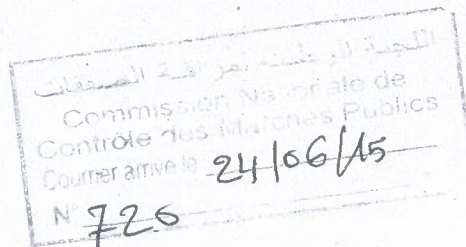 اللجنة الوطنية لمراقبة الصفقات
Commission Nationale de
Contrôle des Marchés Publics
Courrier arrivé le 24/06/15
N° 726